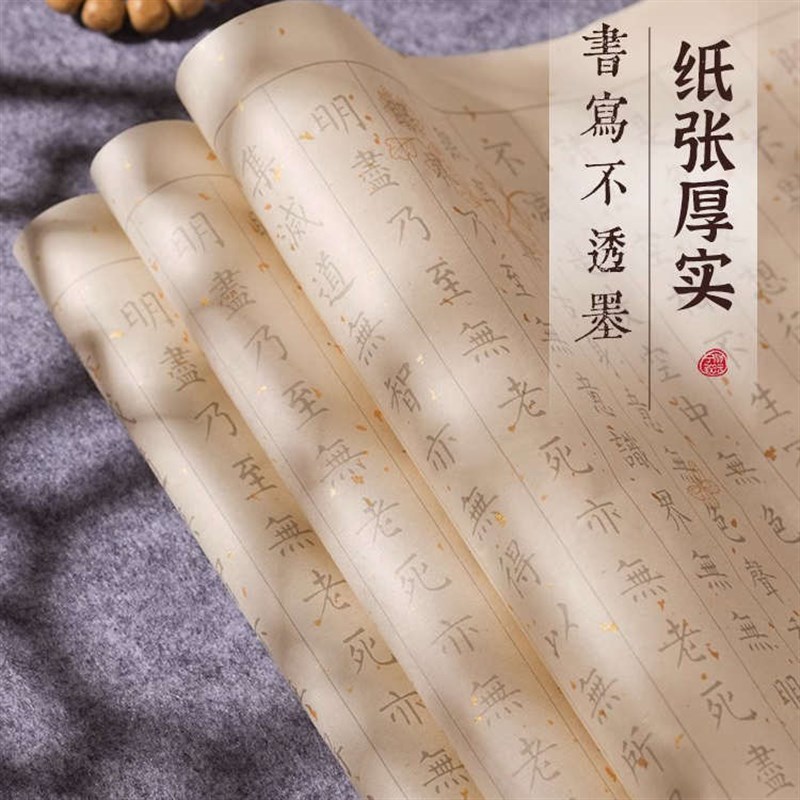 纸张厚实
書寫不透墨
空中無色
無色聲
意識界無無明
明盡乃至無老死亦無老死盡
集滅道無智亦無得以無所
明盡乃至無老死亦無老
明盡乃至無老死亦無